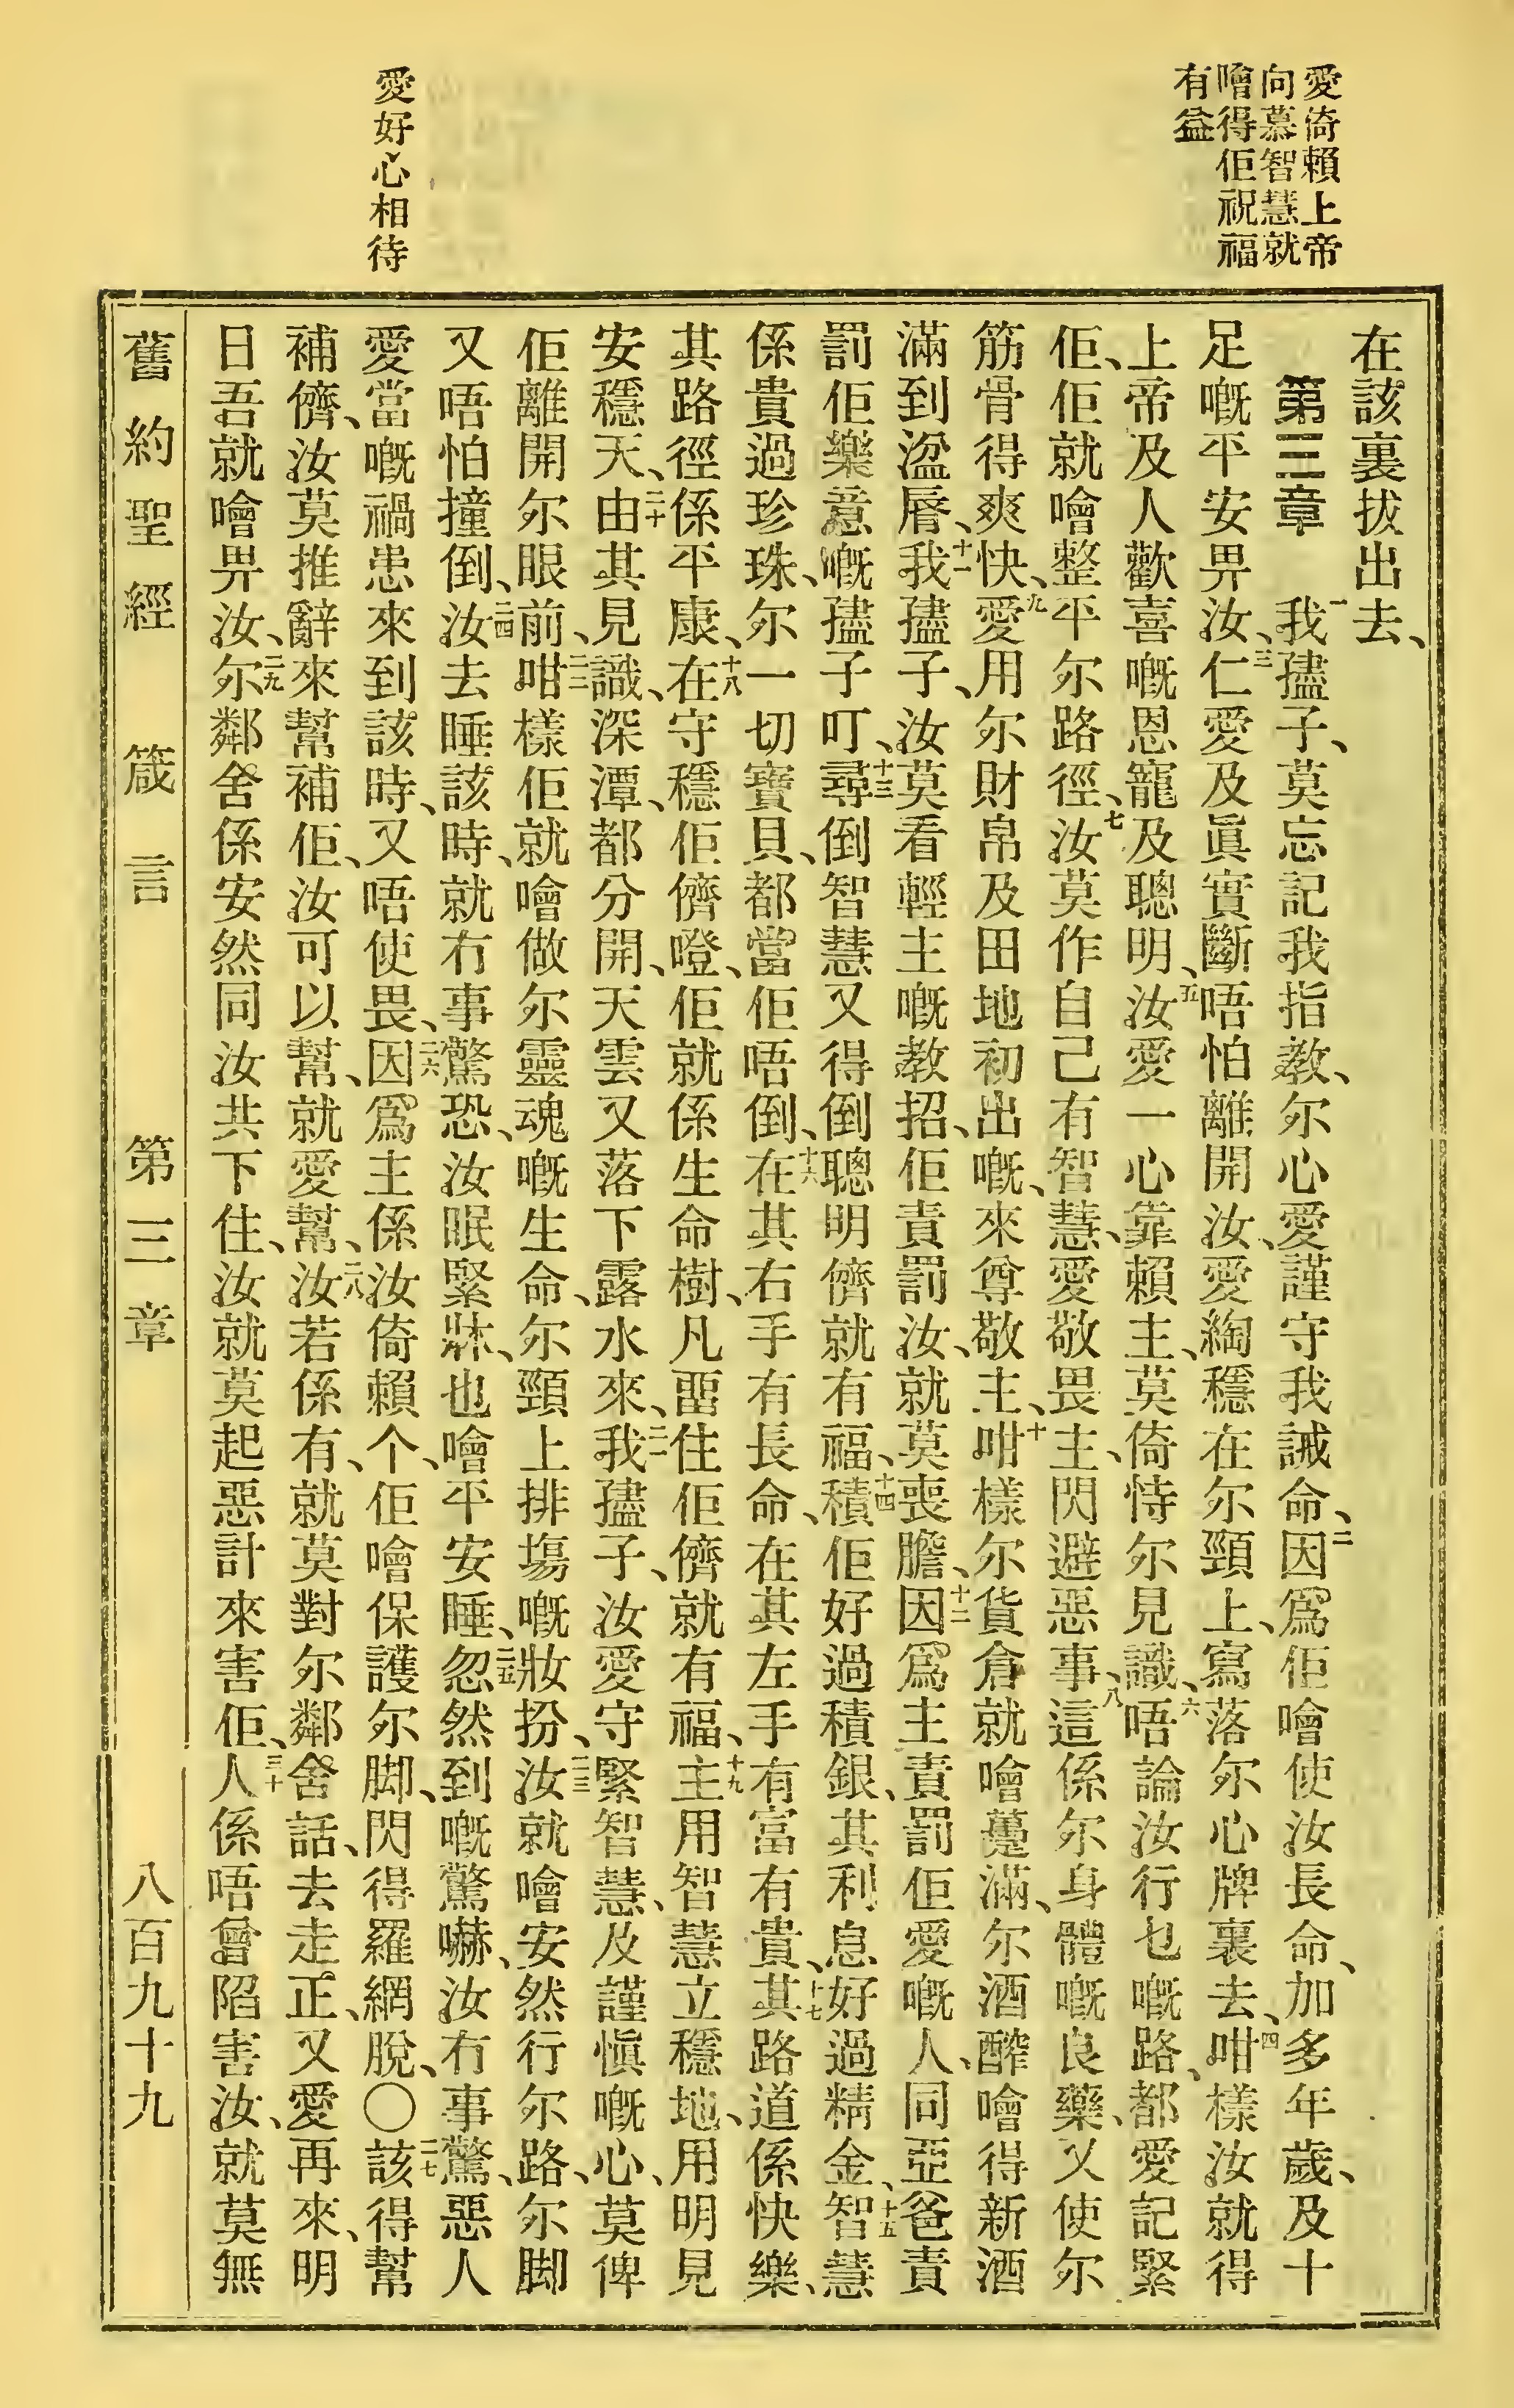 愛倚賴上帝
向慕智慧就
噲得佢祝福
有益
愛好心相待
在該裏拔出去、
第三章 一我孻子、莫忘記我指教、尔心愛謹守我誡命、二因爲佢噲使汝長命、加多年歲、及十
足嘅平安畀汝、三仁愛及眞實斷唔怕離開汝、愛綯穩在尔頸上、寫落尔心牌裏去、四咁樣汝就得
上帝及人歡喜嘅恩寵及聰明、五汝愛一心靠賴主、莫倚恃尔見識、六唔論汝行乜嘅路、都愛記緊
佢、佢就噲整平尔路徑、七汝莫作自己有智慧、愛敬畏主、閃避惡事、八這係尔身體嘅良藥、乂使尔
筋骨得爽快、九愛用尔財帛及田地初出嘅、來尊敬主、十咁樣尔貨倉就噲躉滿、尔酒醡噲得新酒
滿到湓脣、十一我孻子、汝莫看輕主嘅教招、佢責罰汝、就莫喪膽、十二因爲主責罰佢愛嘅人、同亞爸責
罰佢樂意嘅孻子叮、十三尋倒智慧又得倒聰明儕就有福、十四積佢好過積銀、其利息好過精金、十五智慧
係貴過珍珠、尔一切寶貝、都當佢唔倒、十六在其右手有長命、在其左手有富有貴、十七其路道係快樂、
其路徑係平康、十八在守穩佢儕噔、佢就係生命樹、凡畱住佢儕就有福、十九主用智慧立穩地、用明見
安穩天、二十由其見識、深潭都分開、天雲又落下露水來、二一我孻子、汝愛守緊智慧、及謹愼嘅心、莫俾
佢離開尔眼前、二二咁樣佢就噲做尔靈魂嘅生命、尔頸上排塲嘅妝扮、二三汝就噲安然行尔路、尔脚
又唔怕撞倒、二四汝去睡該時、就冇事驚恐、汝眠緊牀、也噲平安睡、二五忽然到嘅驚嚇、汝冇事驚、惡人
愛當嘅禍患來到該時、又唔使畏、二六因爲主係汝倚賴个、佢噲保護尔脚、閃得羅網脫、〇二七該得幫
補儕、汝莫推辭來幫補佢、汝可以幫、就愛幫、二八汝若係有、就莫對尔鄰舍話、去走正、又愛再來、明
日吾就噲畀汝、二九尔鄰舍係安然同汝共下住、汝就莫起惡計來害佢、三十人係唔曾陷害汝、就莫無
舊約聖經 箴言 第三章 八百九十九